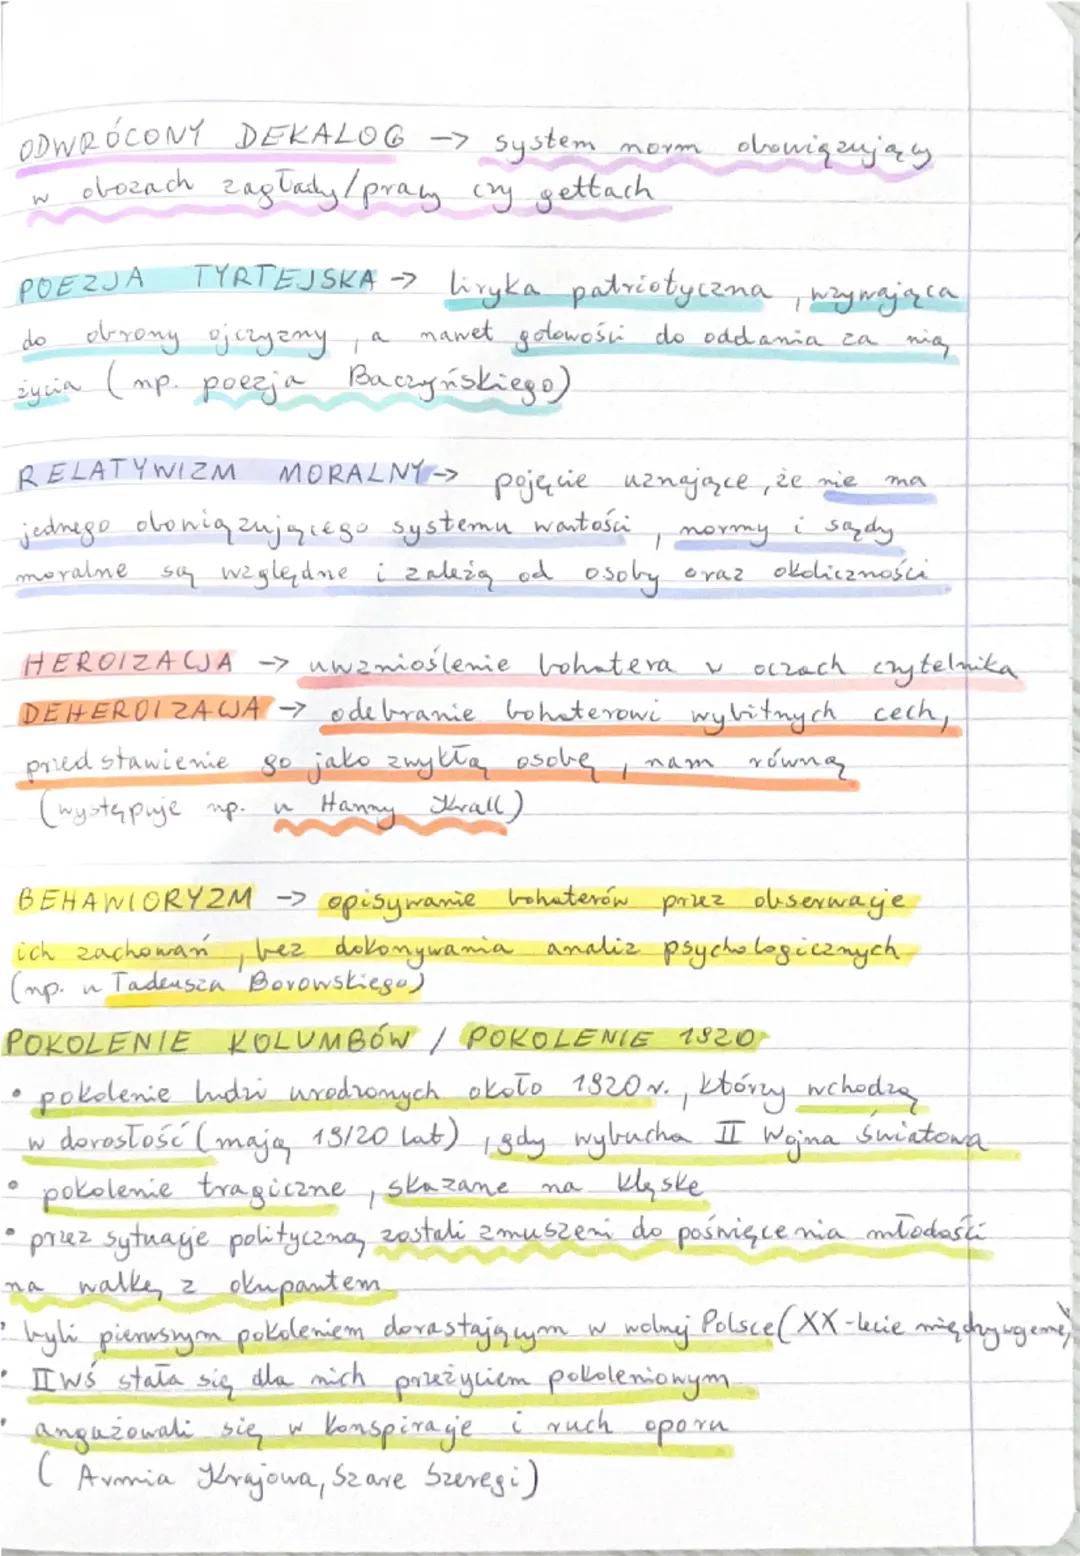 ODWRÓCONY DEKALOG -> system norm obowiązujący
w obozach zagłady/pracy czy gettach
POEZJA TYRTEJSKA -> liryka patriotyczna, wzywająca
do obrony ojczyzny, a nawet gotowości do oddania za nią
życia (np. poezja Baczyńskiego)
RELATYWIZM MORALNY -> pojęcie uznające, że nie ma
jednego obowiązującego systemu wartości, normy i sądy
moralne są względne i zależą od osoby oraz okoliczności
HEROIZACJA -> uwznioślenie bohatera w oczach czytelnika
DEHEROIZACJA -> odebranie bohaterowi wybitnych cech,
przedstawienie go jako zwykłą osobę, nam równą
(występuje np. u Hanny Krall)
BEHAWIORYZM -> opisywanie bohaterów przez obserwacje
ich zachowań, bez dokonywania analiz psychologicznych
(np. u Tadeusza Borowskiego)
POKOLENIE KOLUMBÓW / POKOLENIE 1920
• pokolenie ludzi urodzonych około 1920 r., którzy wchodzą
w dorosłość (mają 19/20 lat), gdy wybucha II Wojna Światowa
• pokolenie tragiczne, skazane na klęskę
• przez sytuację polityczną zostali zmuszeni do poświęcenia młodości
na walkę z okupantem
• byli pierwszym pokoleniem dorastającym w wolnej Polsce (XX-lecie międzywojenne)
• IIWŚ stała się dla nich przeżyciem pokoleniowym
• angażowali się w konspirację i ruch oporu
(Armia Krajowa, Szare Szeregi)